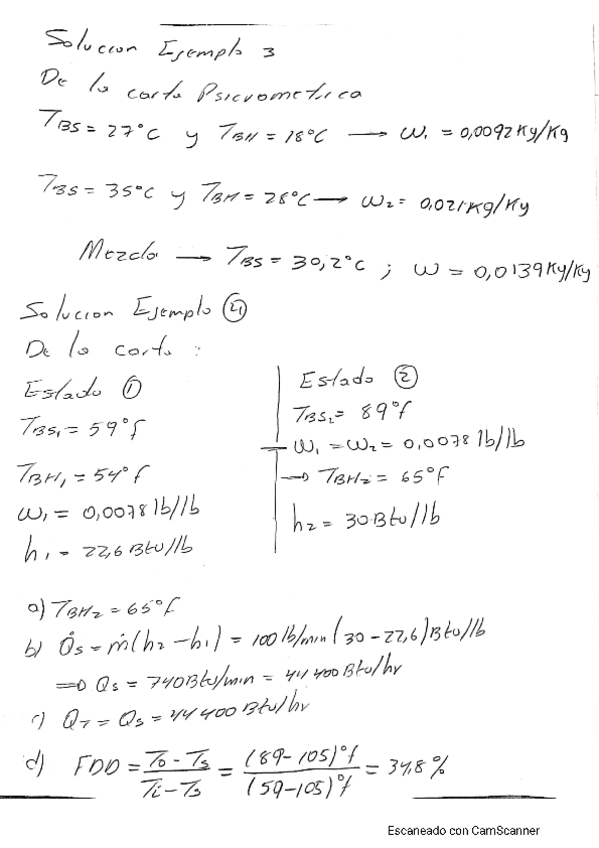 Solucion Ejemplo 3
De la carta Psicrometrica
TBS = 27°C y TBH = 18°C → ω1 = 0,0092 Kg/Kg
TBS = 35°C y TBH = 28°C → ω2 = 0,021 Kg/Kg
Mezcla → TBS = 30,2°C ; ω = 0,0139 Kg/Kg
Solucion Ejemplo ④
De la carta :
Estado ①
TBS1 = 59°f
TBH1 = 54°f
ω1 = 0,0078 lb/lb
h1 = 22,6 Btu/lb
Estado ②
TBS2 = 89°f
ω1 = ω2 = 0,0078 lb/lb
→ TBH2 = 65°F
h2 = 30 Btu/lb
a) TBH2 = 65°f
b) Q̇s = ṁ(h2 - h1) = 100 lb/min (30 - 22,6) Btu/lb
⇒ Qs = 740 Btu/min = 44 400 Btu/hr
c) QT = Qs = 44 400 Btu/hr
d) FDD = To - Ts / Ti - Ts = (89 - 105)°f / (59 - 105)°f = 34,8 %
Escaneado con CamScanner